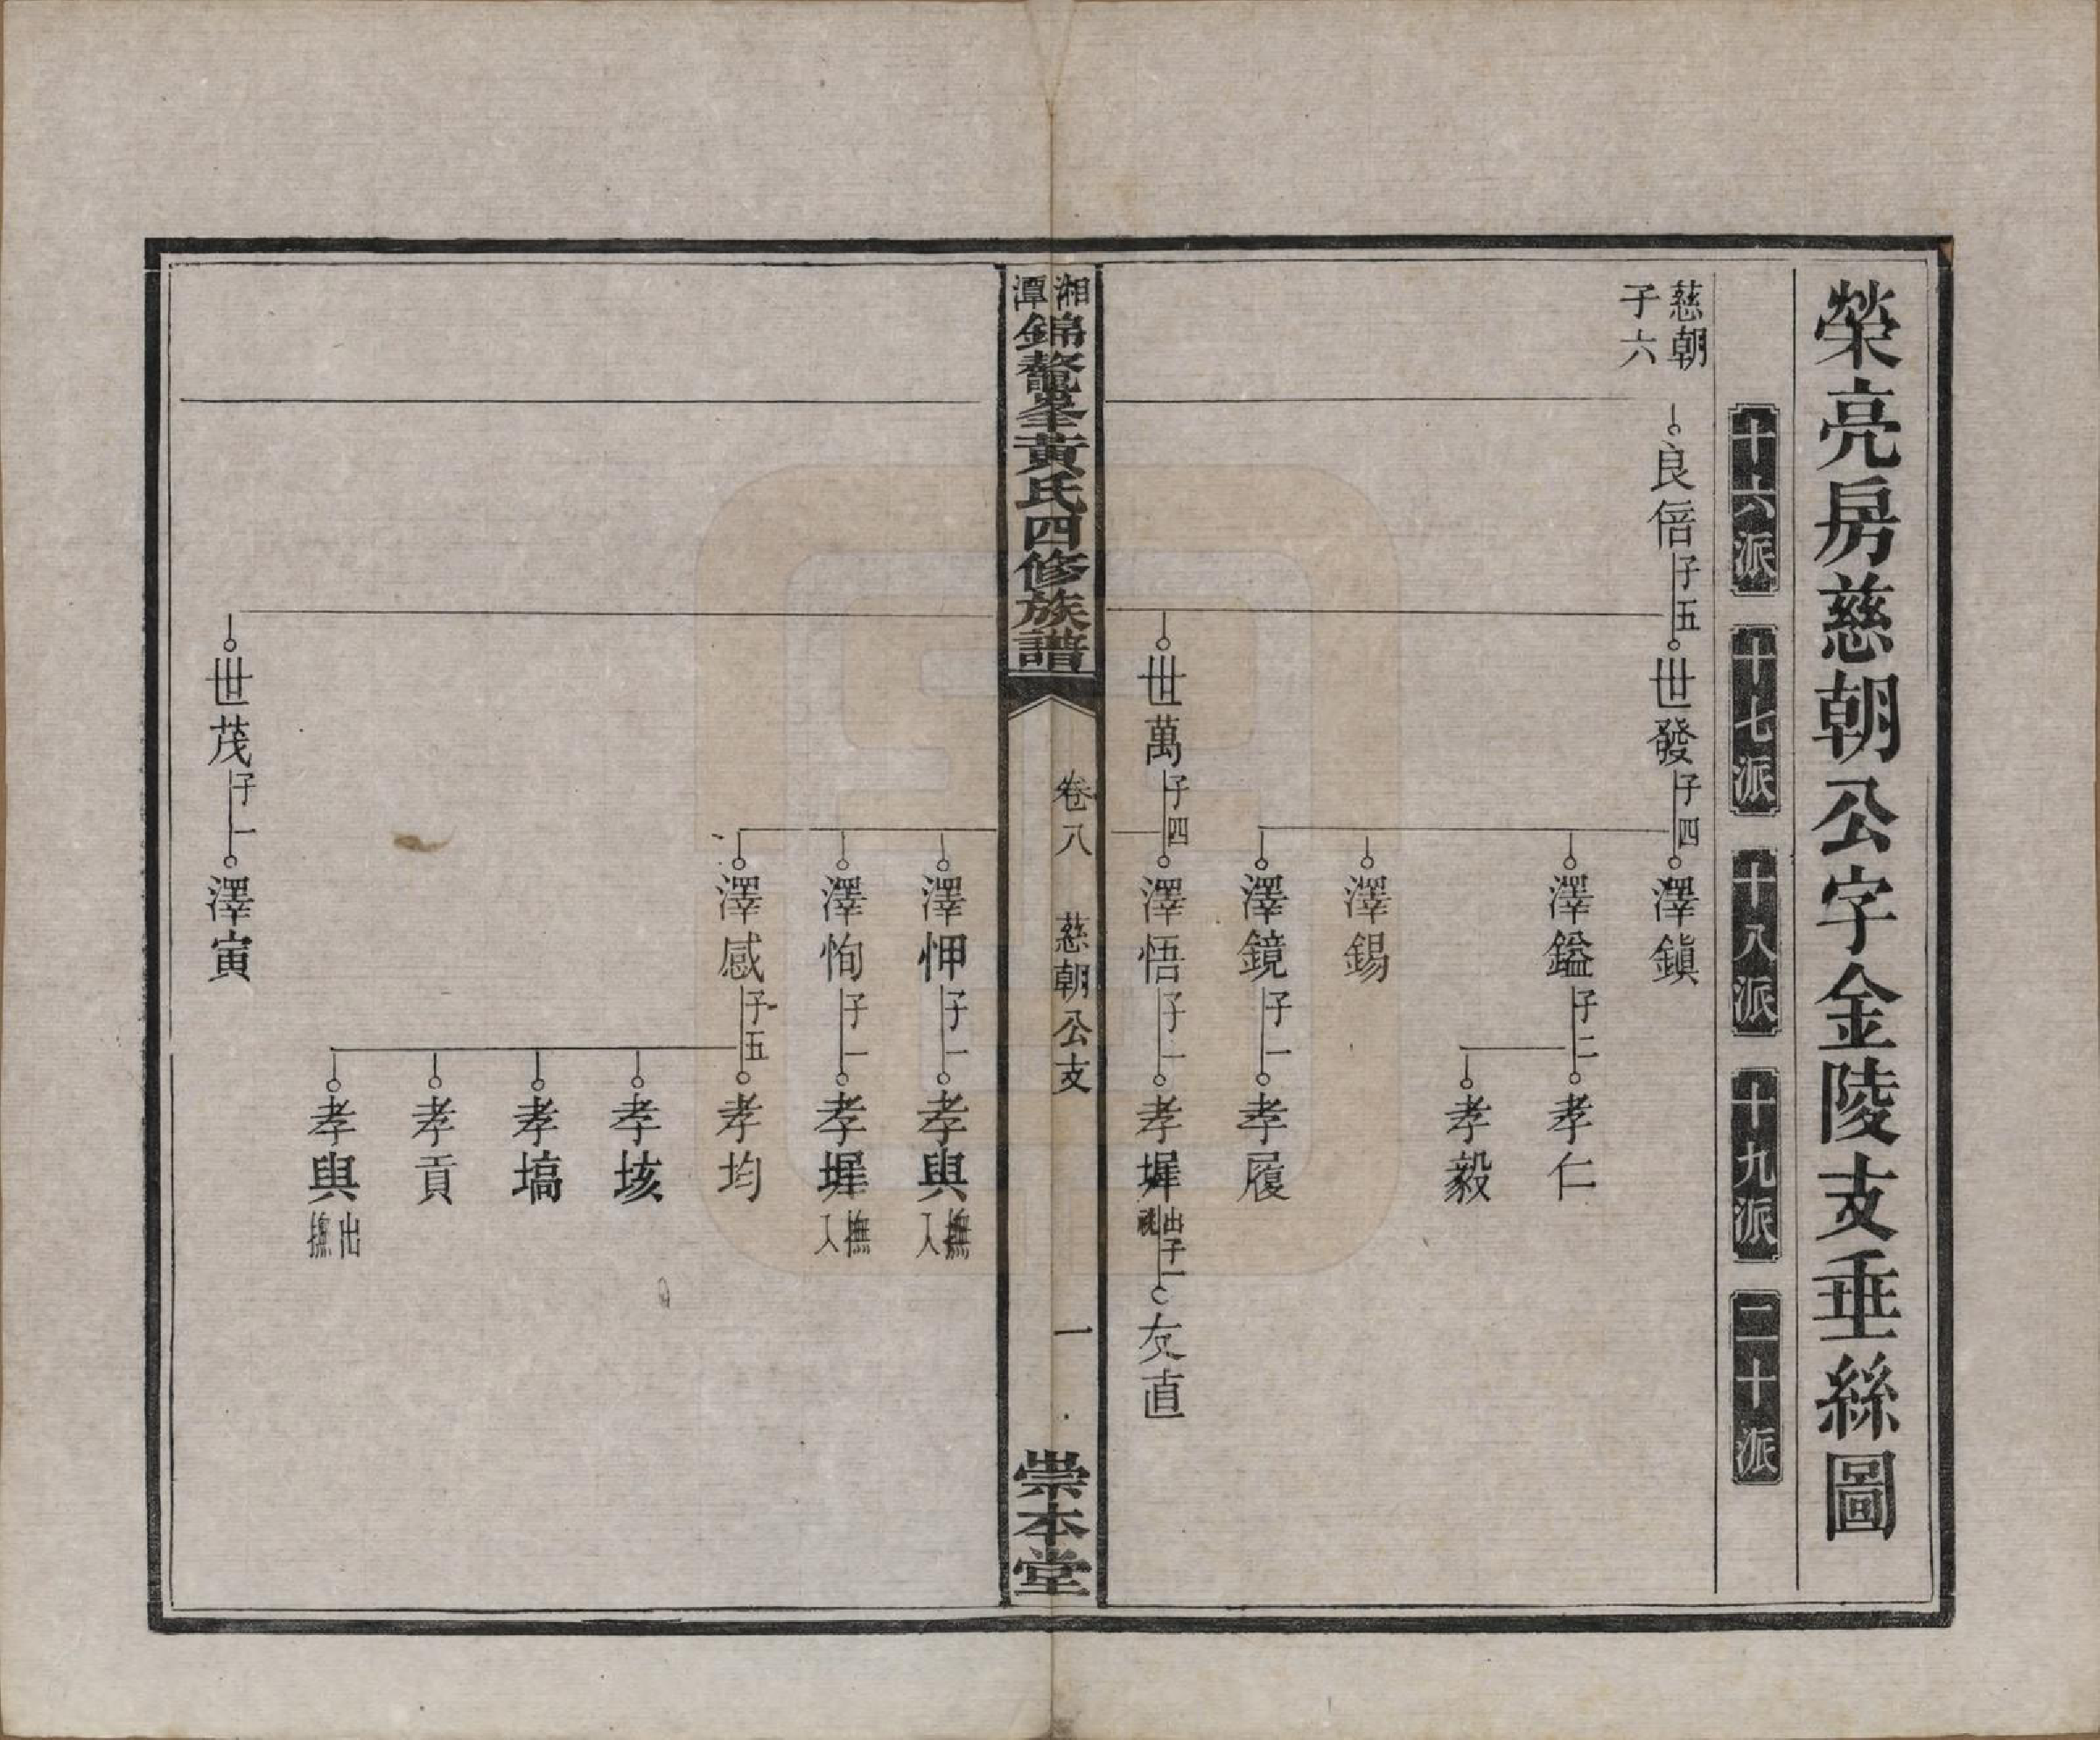 榮亮房慈朝公字金陵支垂絲圖
十六派
十七派
十八派
十九派
二十派
慈朝
子六
良倍子五
世發子四
澤鎮
澤鎰子二
孝仁
孝毅
澤錫
澤鏡子一
孝履
世萬子四
澤悟子一
孝墀出祧子一
友直
湘潭錦鰲峯黃氏四修族譜
卷八
慈朝公支
一
崇本堂
澤怈子一
孝與撫入
澤恂子一
孝墀撫入
澤感子五
孝均
孝垓
孝塙
孝貢
孝與出撫
世茂子一
澤寅